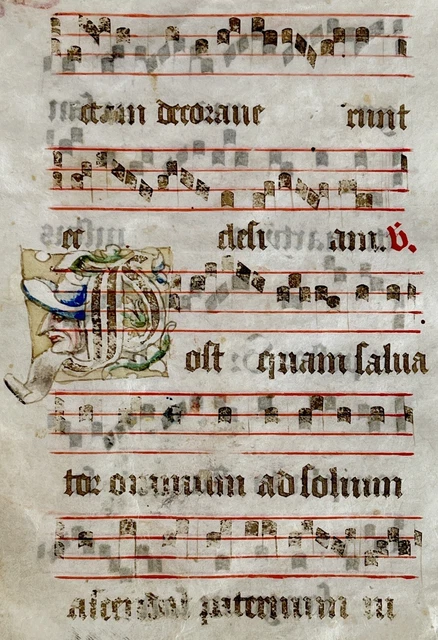 ctam decoraue runt
ec clesi am. ℣.
Post quam salua
tor omnium ad solium
paternum in